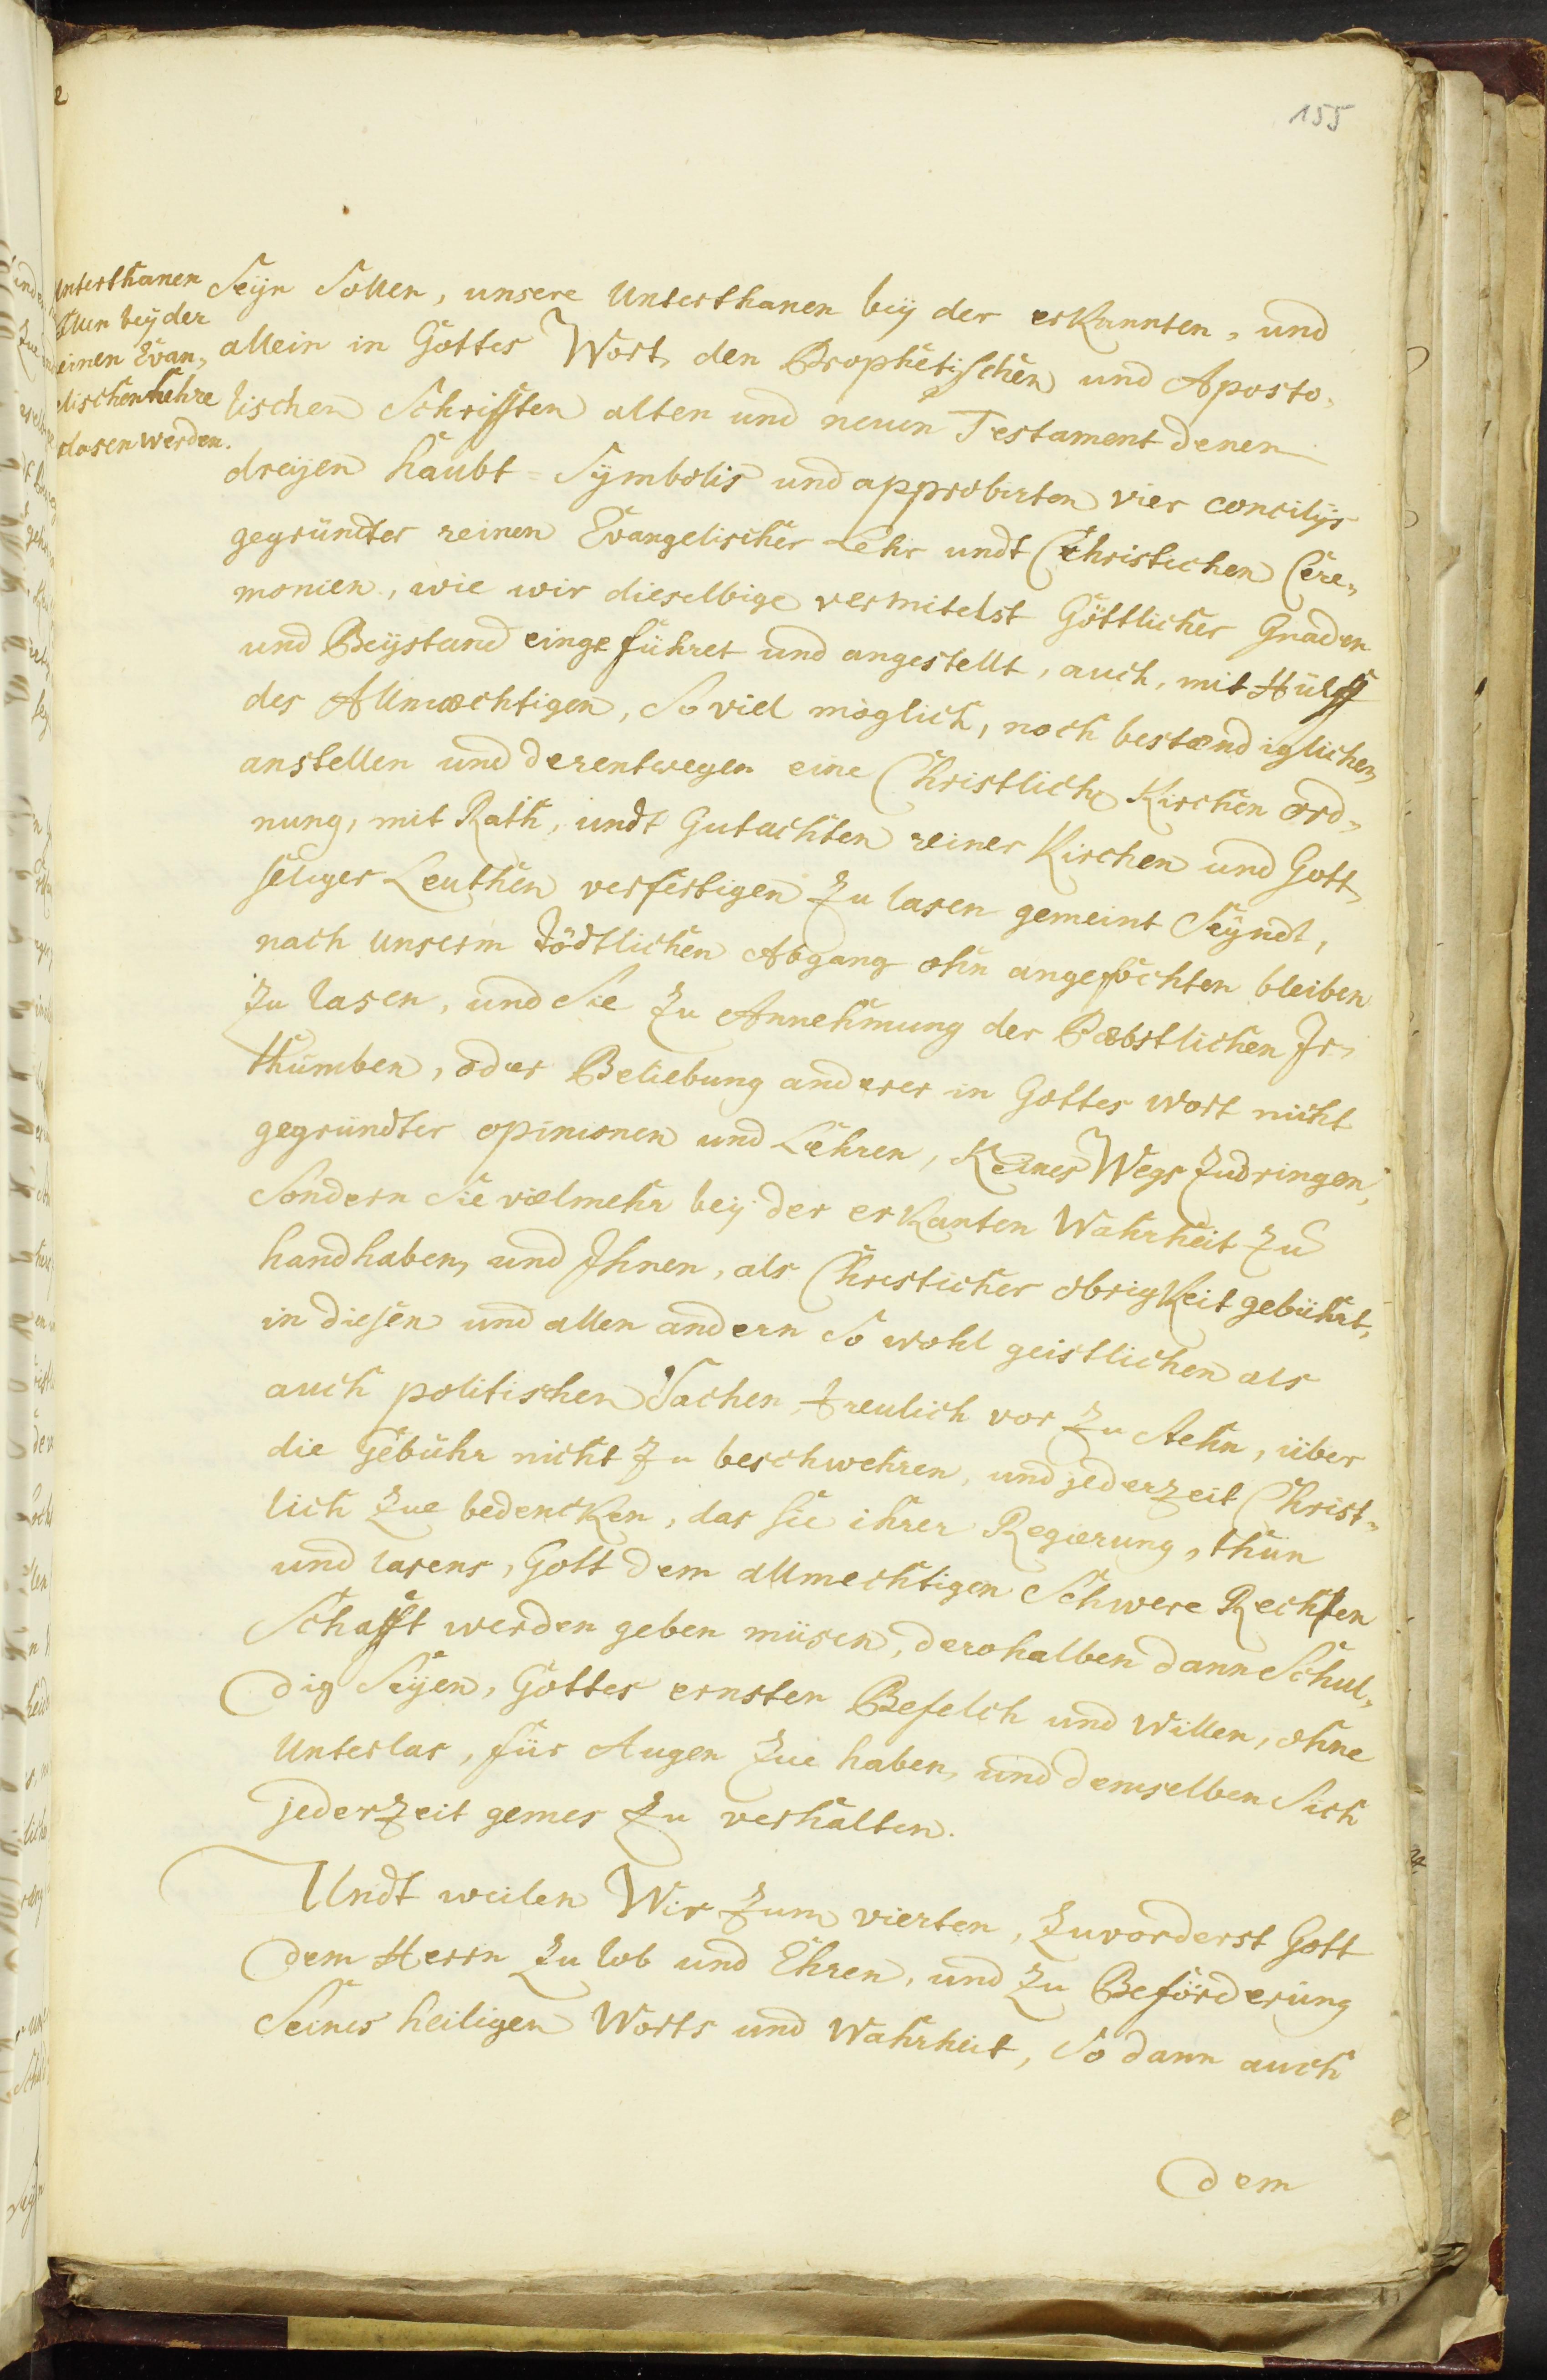 155
Unterthanen
sollen bey der
reinen Evan,
gelischen Lehre
gelasen werden.
Seyn Sollen, unsere Unterthanen bey der erkannten, und
allein in Gottes Wort, den Prophetischen und Aposto,
lischen Schrifften alten und neuen Testament denen
dreyen haubt=Symbolis und approbirten vier concilijs
gegründter reinen Evangelischer Lehr undt Christlichen Cere,
monien, wie wir dieselbige vermitelst Göttlicher Gnaden
und Beystand eingeführet und angestellt, auch, mit Hülff
des Allmæchtigen, So viel möglich, noch bestændiglichen
anstellen und derentwegen eine Christliche Kirchen ord,
nung, mit Rath, undt Gutachten reiner Kirchen und Gott,
seliger Leuthen verfertigen zu lasen gemeint Seyndt,
nach unserm Tödtlichen Abgang ohn angefochten bleiben
zu lasen, und Sie zu Annehmung der Pæbstlichen Ir,
thumben, oder Beliebung anderer in Gottes wort nicht
gegründter opinionen und Lehren, Keines Wegs zudringen,
Sondern Sie vielmehr bey der erkanten Wahrheit zu
handhaben, und Ihnen, als Christlicher obrigkeit gebührt,
in diesen und allen andern So wohl geistlichen als
auch politischen Sachen, treulich vor zu stehn, über
die gebühr nicht zu beschwehren, und jederzeit Christ,
lich zue bedencken, das sie ihrer Regierung, thun
und lasens, Gott dem allmechtigen Schwere Rechten
Schafft werden geben müsen, derohalben dann Schul,
dig Seyen, Gottes ernsten Befelch und Willen, ohne
Unterlas, für Augen zue haben, und demselben Sich
jederzeit gemes zu verhalten.
Undt weilen Wir zum vierten, zuvorderst Gott
dem Herrn zu lob und Ehren, und zu Beförderung
Seines heiligen Worts und Wahrheit, So dann auch
dem